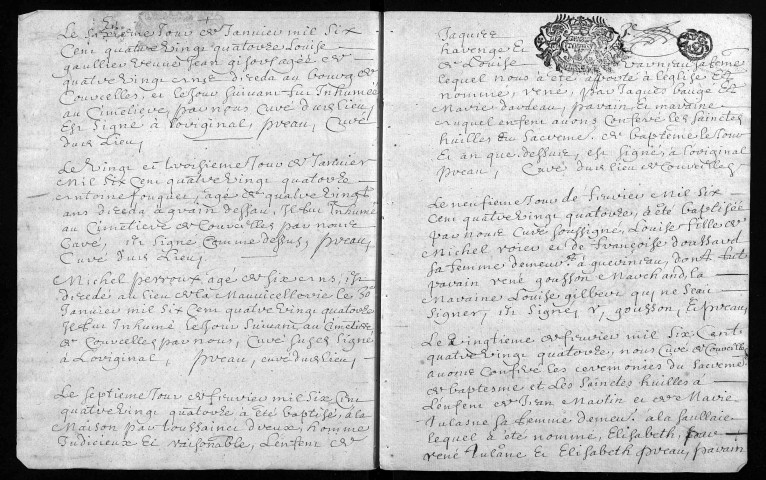 Le sixieme Jour de Janvier mil six
Cent quatre vingt quatorze Louise
gaullier veuve Jean gisors agée de
quatre vingt ans deceda au bourg de
Courcelles, et le Jour suivant fut Inhumée
au Cimetiere, par nous Curé dud. Lieu,
Est signé à Loriginal, preau, Curé
dud. Lieu,
Le vingt et troisieme Jour de Janvier
mil six Cent quatre vingt quatorze
antoine fouquer, agé de quatre vingt
ans deceda Il fut Inhumé
au Cimetiere de Courcelles par nous
Curé, est signé Comme dessus, preau,
Curé dud. Lieu,
Michel perroux, agé de six ans, est
decedé au lieu de la le 30
Janvier mil six Cent quatre vingt quatorze
Il fut Inhumé le Jour suivant au Cimetiere
de Courcelles par nous, Curé signé
à Loriginal, preau, curé dud. lieu,
Le septieme Jour de fevrier mil six Cent
quatre vingt quatorze à été baptisé, à la
Maison par toussainct dreux, homme
Judicieux et raisonable, L'enfent de
Jaques
havenge et
de Louise sa feme
lequel nous à été aporté à leglise et
nommé, rené, par Jaques et
Marie davdeau, parain et maraine
auquel enfent avons Conferé les sainctes
huilles du sacreme. de baptême le Jour
et an que dessus, est signé à loriginal
preau, Curé dud. lieu de Courcelles
Le neufieme Jour de fevrier mil six
Cent quatre vingt quatorze, à été baptisée
par nous Curé soussigné, Louise fille de
Michel roier et de Françoise doussard
sa femme demeur. à quevineau, dont fut
parain rené gousson Marchand, la
Maraine Louise gilbert qui ne scait
signer, est signé, r, gousson, et preau,
Le vingtieme de fevrier mil six Cent
quatre vingt quatorze, nous Curé de Courcelles
avons Conferé les ceremonies du sacreme
de baptesme et des sainctes huilles à
L'enfent de Jean Martin et de Marie
Aulasne sa femme demeur. a la saullaie
lequel à été nommé, Elisabeth, par
rené Aulâne et Elisabeth preau, parain